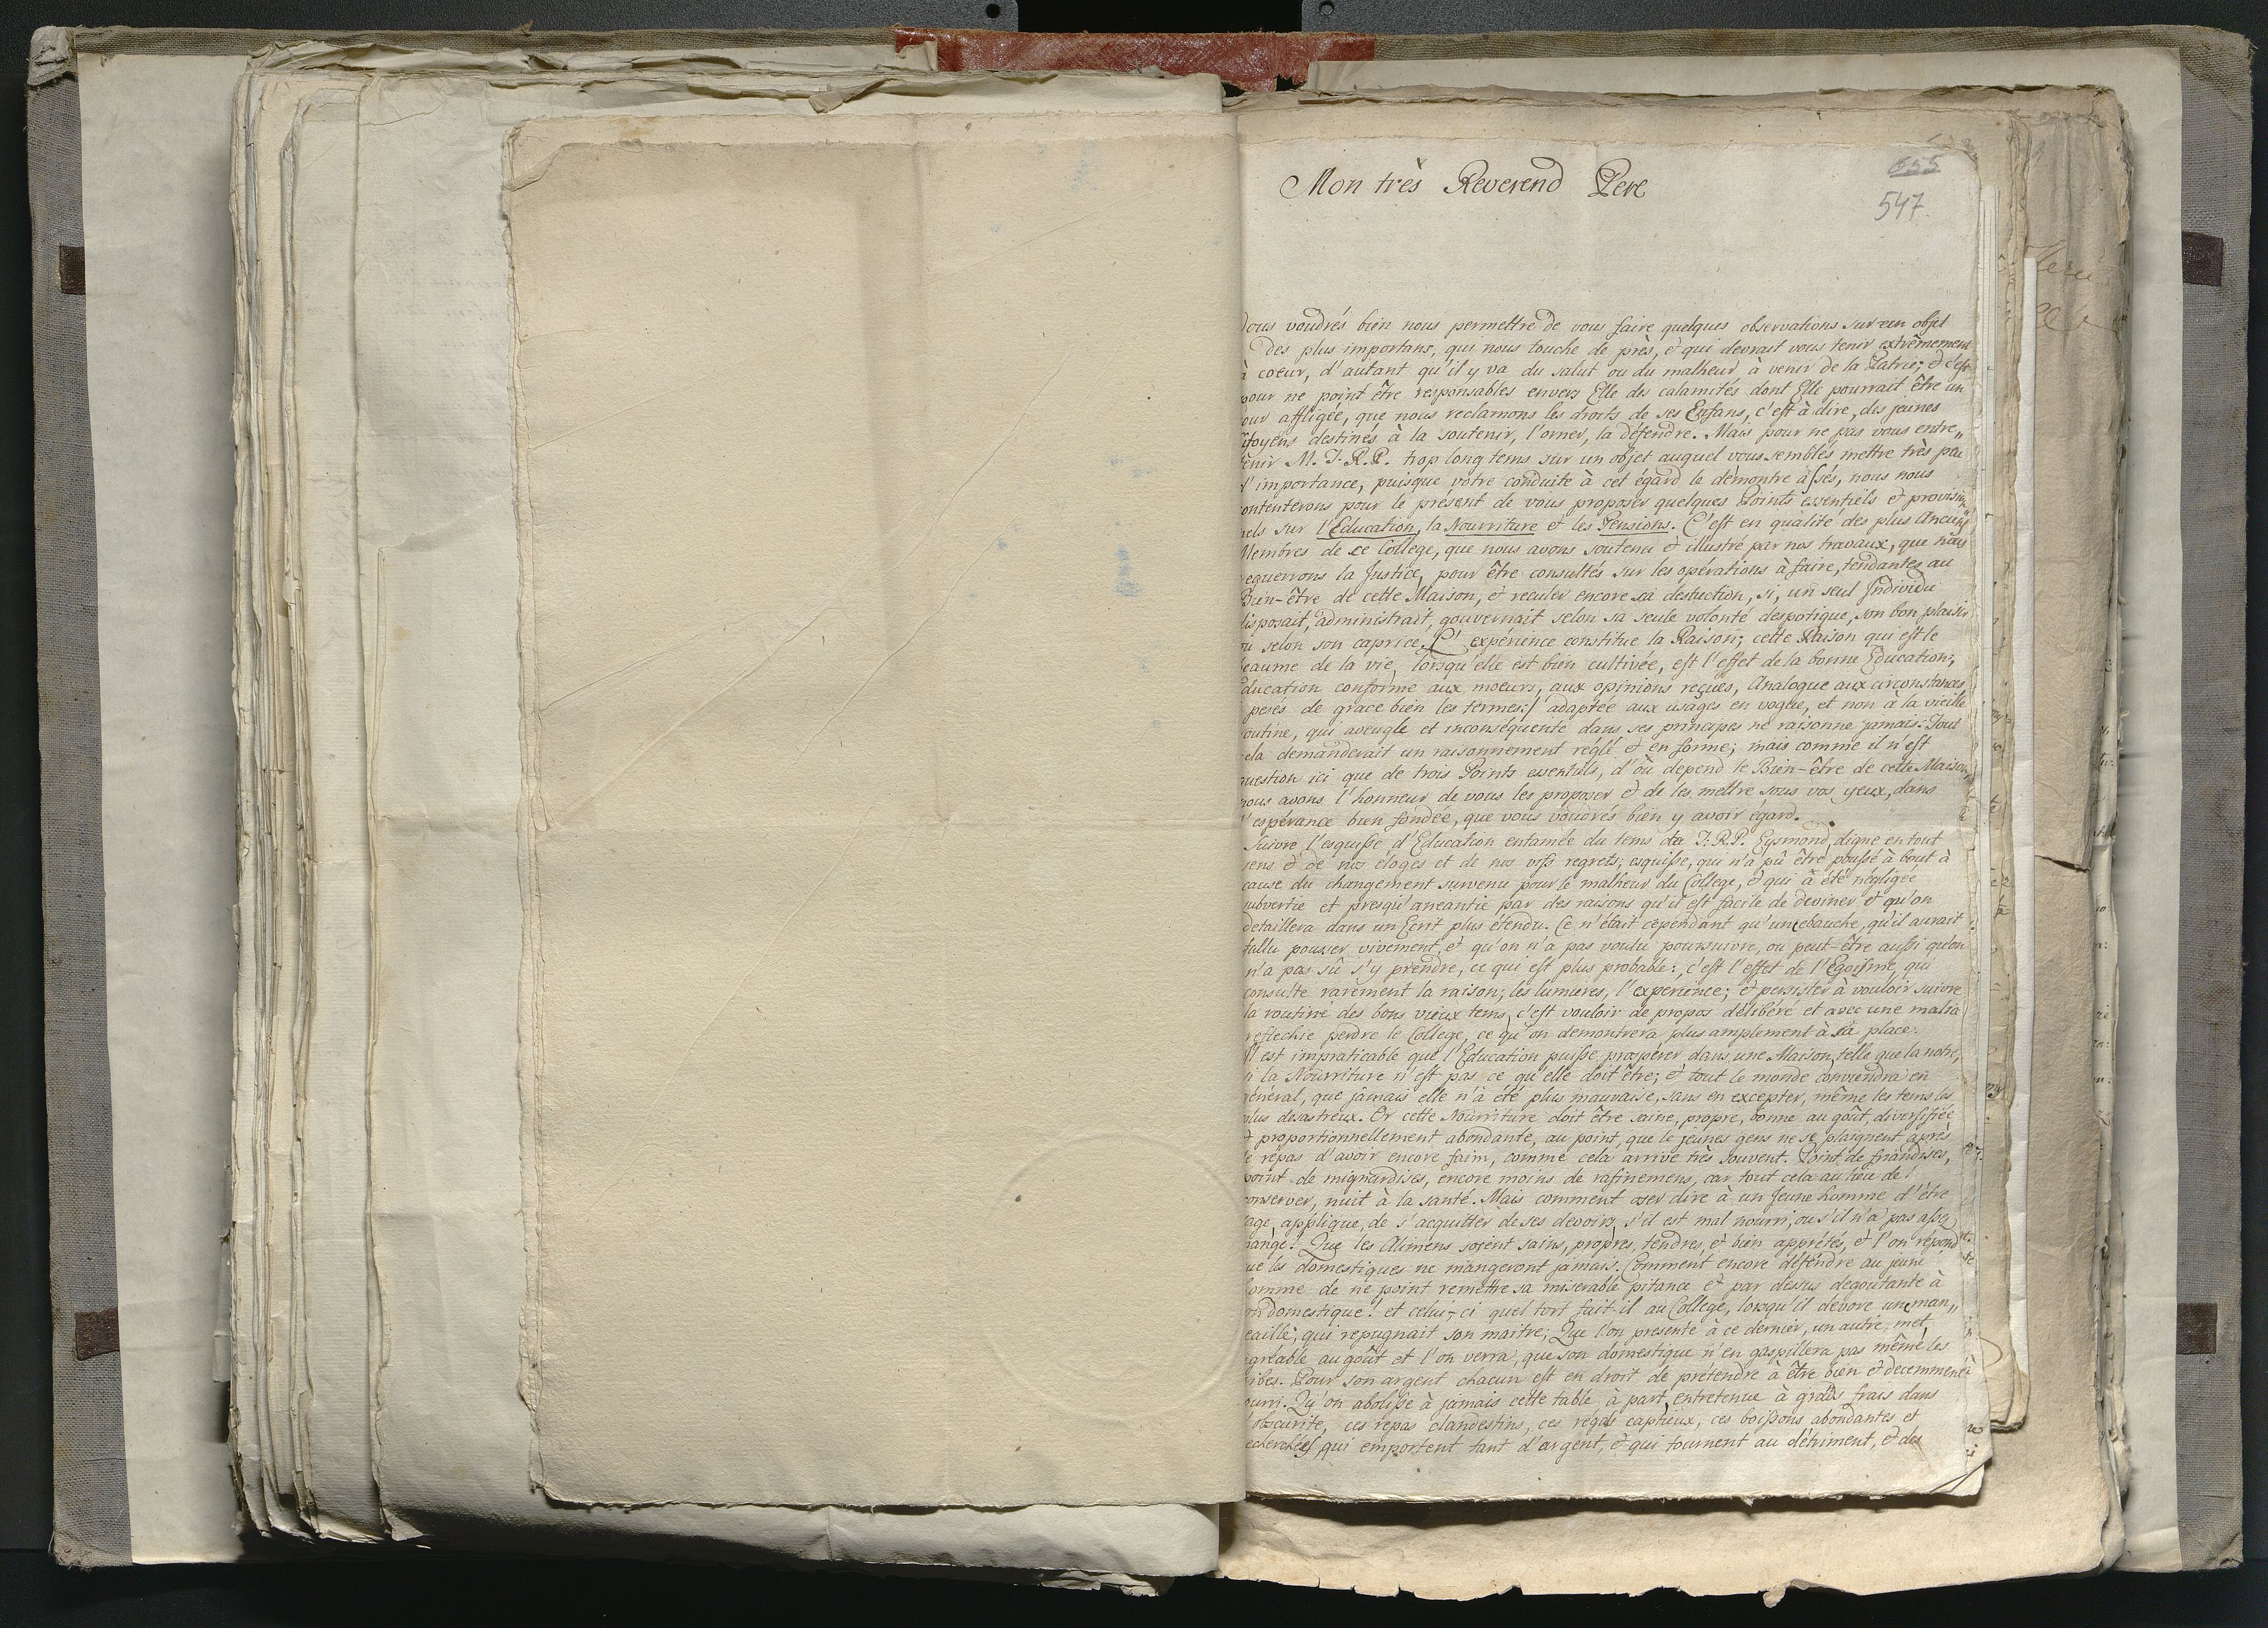 Mon très Reverend Pere
655
547.
Vous voudrés bien nous permettre de vous faire quelques observations sur un objet
des plus importans, qui nous touche de près, et qui devrait vous tenir extrêmement
à coeur, d'autant qu'il y va du salut ou du malheur à venir de la Patrie; et c'est
pour ne point être responsables envers Elle des calamités dont Elle pourrait être un
jour affligée, que nous reclamons les droits de ses Enfans, c'est à dire, des jeunes
Citoyens destinés à la soutenir, l'orner, la défendre. Mais pour ne pas vous entre„
tenir M. T. R. P. trop long tems sur un objet auquel vous semblés mettre très peu
d'importance, puisque votre conduite à cet égard le démontre assés, nous nous
contenterons pour le présent de vous proposer quelques Points essentiels et provision„
nels sur l'Education, la Nourriture et les Pensions. C'est en qualité des plus Anciens
Membres de ce College, que nous avons soutenu et illustré par nos travaux, que nous
requerrons la Justice, pour être consultés sur les opérations à faire, tendantes au
Bien-être de cette Maison, et reculer encore sa destuction, si, un seul Individu
disposait, administrait, gouvernait selon sa seule volonté despotique, son bon plaisir
ou selon son caprice. L'expérience constitue la Raison; cette Raison qui est le
beaume de la vie, lorsqu'elle est bien cultivée, est l'effet de la bonne Education,
Education conforme aux moeurs, aux opinions reçues, Analogue aux circonstances
pesés de grace bien les termes:/ adaptée aux usages en vogue, et non à la vieille
routine, qui aveugle et inconséquente dans ses principes ne raisonne jamais. Tout
cela demanderait un raisonnement réglé et en forme; mais comme il n'est
question ici que de trois Points essentiels, d'où depend le Bien-être de cette Maison,
nous avons l'honneur de vous les proposer et de les mettre sous vos yeux, dans
l'espérance bien fondée, que vous voudrés bien y avoir égard.
Suivre l'esquisse d'Education entamée du tems du T. R. P. Eysmond, digne en tout
sens et de nos éloges et de nos vifs regrets; esquisse, qui n'a pû être poussé à bout à
cause du changement survenu pour le malheur du College, et qui à été négligée
subvertie et presqu'aneantie par des raisons qu'il est facile de deviner et qu'on
detaillera dans un Ecrit plus étendu. Ce n'était cependant qu'une ebauche, qu'il aurait
fallu pousser vivement, et qu'on n'a pas voulu poursuivre, ou peut-être aussi qu'on
n'a pas sû s'y prendre, ce qui est plus probable: c'est l'effet de l'Egoisme, qui
consulte rarement la raison, les lumieres, l'experience; et persister à vouloir suivre
la routine des bons vieux tems, c'est vouloir de propos délibéré et avec une malice
reflechie perdre le College, ce qu'on demontrera plus amplement à sa place.
Il est impraticable que l'Education puisse prospérer dans une Maison telle que la notre,
si la Nourriture n'est pas ce qu'elle doit être; et tout le monde conviendra en
général, que jamais elle n'à été plus mauvaise, sans en excepter, même les tems les
plus desastreux. Or cette Nourriture doit être saine, propre, bonne au goût, diversifiée
et proportionnellement abondante, au point, que le jeunes gens ne se plaignent après
le repas d'avoir encore faim, comme cela arrive très souvent. Point de friandises,
point de mignardises, encore moins de rafinemens, car tout cela au lieu de
conserver, nuit à la santé. Mais comment oser dire à un Jeune homme d'être
sage, applique, de s'acquitter de ses devoirs, s'il est mal nourri, ou s'il n'a pas assez
mangé! Que les Alimens soient sains, propres, tendres, et bien apprêtés, et l'on répond
que les domestiques ne mangeront jamais. Comment encore défendre au jeune
homme de ne point remettre sa miserable pitance et par dessus degoutante à
son domestique! et celui-ci quel tort fait-il au College, lorsqu'il devore une man„
geaille, qui repugnait son maitre; Que l'on presente à ce dernier, un autre met
agréable au goût et l'on verra, que son domestique n'en gaspillera pas même les
bribes. Pour son argent chacun est en droit de prétendre à être bien et decemment
nourri. Qu'on abolisse à jamais cette table à part, entretenue à grands frais dans
l'obscurité, ces repas clandestins, ces régals captieux, ces boissons abondantes et
recherchées, qui emportent tant d'argent, et qui tournent au détriment, et des